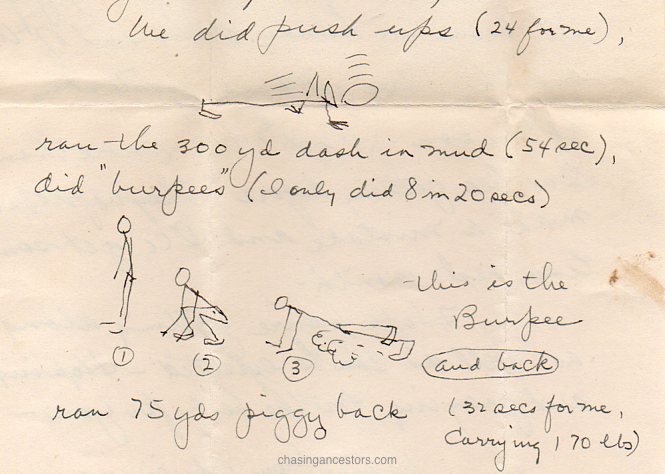 We did push ups (24 for me),
ran the 300 yd dash in mud (54 sec),
did "burpees" (I only did 8 in 20 secs)
this is the
Burpee
① ② ③ and back
ran 75 yds piggy back (32 secs for me,
carrying 170 lbs)
chasingancestors.com